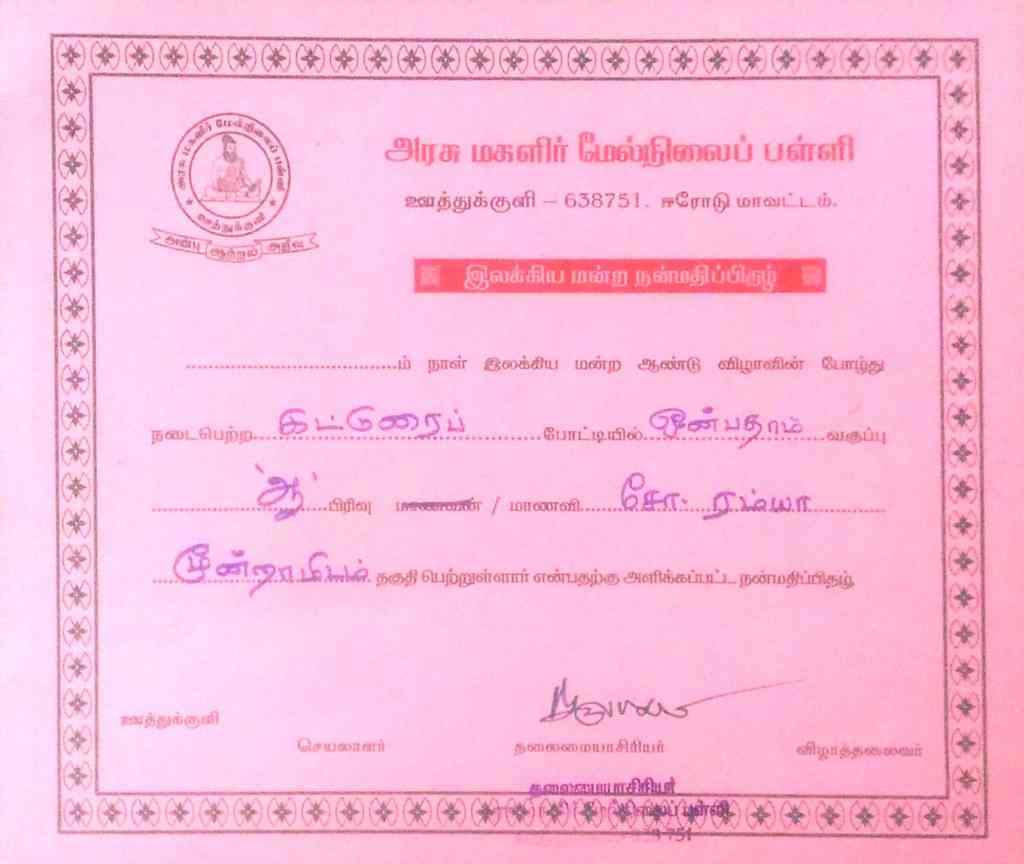 அரசு மகளிர் மேல்நிலைப் பள்ளி
ஊத்துக்குளி
அன்பு ஆற்றல் அறிவு
அரசு மகளிர் மேல்நிலைப் பள்ளி
ஊத்துக்குளி – 638751. ஈரோடு மாவட்டம்.
இலக்கிய மன்ற நன்மதிப்பிதழ்
..............................ம் நாள் இலக்கிய மன்ற ஆண்டு விழாவின் போழ்து
நடைபெற்ற கட்டுரைப் போட்டியில் ஒன்பதாம் வகுப்பு
'ஆ' பிரிவு மாணவன் / மாணவி சோ. ரம்யா
மூன்றாமிடம் தகுதி பெற்றுள்ளார் என்பதற்கு அளிக்கப்பட்ட நன்மதிப்பிதழ்
ஊத்துக்குளி
செயலாளர் தலைமையாசிரியர் விழாத்தலைவர்
தலைமையாசிரியர்
மேல்நிலைப் பள்ளி
638 751